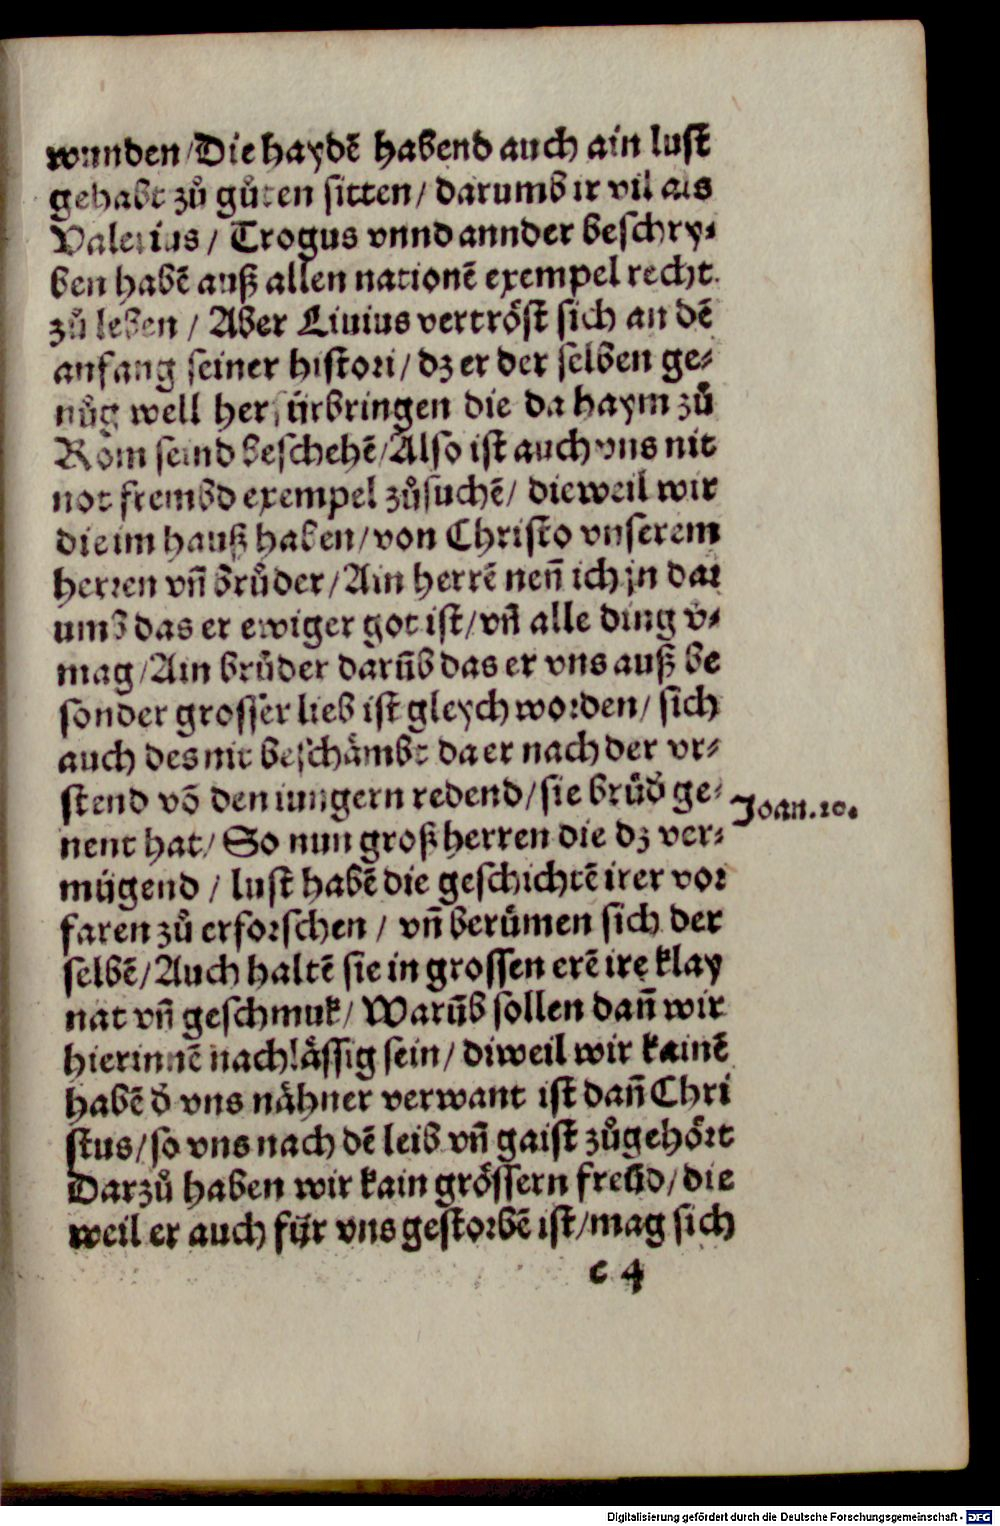 wunden/Die haydē habend auch ain lust
gehabt zů gůten sitten/ darumb ir vil als
Valerius/ Trogus vnnd annder beschry⸗
ben habē auß allen nationē exempel recht
zů leben/ Aber Liuius vertröst sich an dē
anfang seiner histori/ dz er der selben ge⸗
nůg well herfürbringen die da haym zů
Rom seind beschehē/Also ist auch vns nit
not frembd exempel zůsuchē/ dieweil wir
die im hauß haben/von Christo vnserem
herren vn̄ brůder/Ain herrē nen̄ ich jn dar
umb das er ewiger got ist/vn̄ alle ding v⸗
mag/Ain brůder darūb das er vns auß be
sonder grosser lieb ist gleych worden/ sich
auch des nit beschämbt da er nach der vr⸗
stend vō den iungern redend/sie brůd̄ ge⸗
nent hat/ So nun groß herren die dz ver⸗
mügend/ lust habē die geschichtē irer vor
faren zů erforschen/ vn̄ berůmen sich der
selbē/Auch haltē sie in grossen erē ire klay
nat vn̄ geschmuk/ Warūb sollen dan̄ wir
hierinnē nachlässig sein/ diweil wir kainē
habē d̄ vns nähner verwant ist dan̄ Chri
stus/so vns nach dē leib vn̄ gaist zůgehört
Darzů haben wir kain grössern freüd/die
weil er auch für vns gestorbē ist/mag sich
Joan.20.
c 4
Digitalisierung gefördert durch die Deutsche Forschungsgemeinschaft - DFG